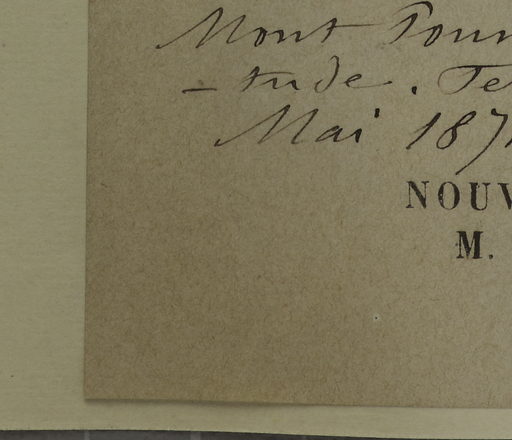 Mont Tour
- tude. Te
Mai 187
NOUV
M.